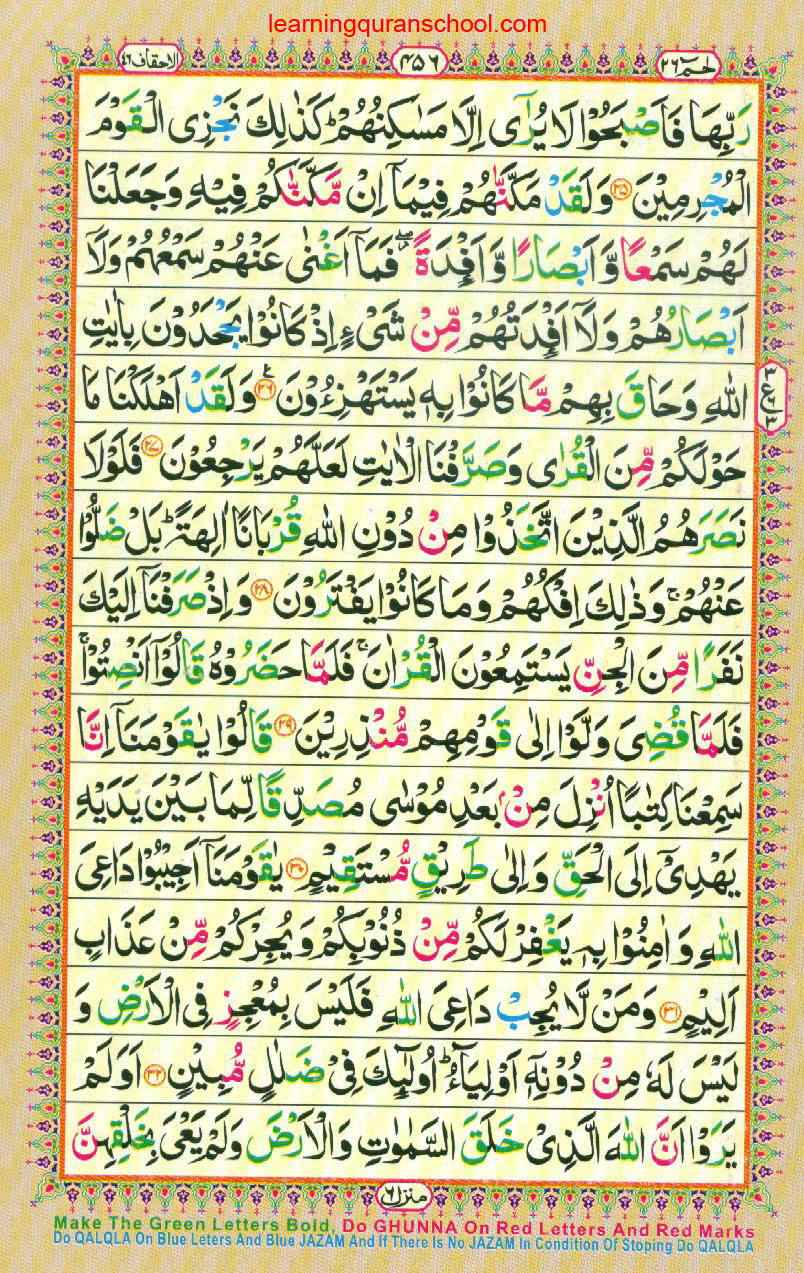 learningquranschool.com
الاحقاف ٤٦ ٤٥٦ حٰمٓ ٢٦
رَبِّهَا فَاَصْبَحُوْا لَا يُرٰٓى اِلَّا مَسٰكِنُهُمْ ؕ كَذٰلِكَ نَجْزِى الْقَوْمَ
الْمُجْرِمِيْنَ ۝٢٥ وَلَقَدْ مَكَّنّٰهُمْ فِيْمَاۤ اِنْ مَّكَّنّٰكُمْ فِيْهِ وَجَعَلْنَا
لَهُمْ سَمْعًا وَّ اَبْصَارًا وَّ اَفْـِٕدَةً ۖ فَمَاۤ اَغْنٰى عَنْهُمْ سَمْعُهُمْ وَلَاۤ
اَبْصَارُهُمْ وَلَاۤ اَفْـِٕدَتُهُمْ مِّنْ شَىْءٍ اِذْ كَانُوْا يَجْحَدُوْنَ بِاٰيٰتِ
اللّٰهِ وَحَاقَ بِهِمْ مَّا كَانُوْا بِهٖ يَسْتَهْزِءُوْنَ ۝٢٦ وَلَقَدْ اَهْلَكْنَا مَا
حَوْلَكُمْ مِّنَ الْقُرٰى وَصَرَّفْنَا الْاٰيٰتِ لَعَلَّهُمْ يَرْجِعُوْنَ ۝٢٧ فَلَوْلَا
نَصَرَهُمُ الَّذِيْنَ اتَّخَذُوْا مِنْ دُوْنِ اللّٰهِ قُرْبَانًا اٰلِهَةً ؕ بَلْ ضَلُّوْا
عَنْهُمْ ۚ وَذٰلِكَ اِفْكُهُمْ وَمَا كَانُوْا يَفْتَرُوْنَ ۝٢٨ وَ اِذْ صَرَفْنَاۤ اِلَيْكَ
نَفَرًا مِّنَ الْجِنِّ يَسْتَمِعُوْنَ الْقُرْاٰنَ ۚ فَلَمَّا حَضَرُوْهُ قَالُوْۤا اَنْصِتُوْا ۚ
فَلَمَّا قُضِىَ وَلَّوْا اِلٰى قَوْمِهِمْ مُّنْذِرِيْنَ ۝٢٩ قَالُوْا يٰقَوْمَنَاۤ اِنَّا
سَمِعْنَا كِتٰبًا اُنْزِلَ مِنْۢ بَعْدِ مُوْسٰى مُصَدِّقًا لِّمَا بَيْنَ يَدَيْهِ
يَهْدِىْۤ اِلَى الْحَقِّ وَ اِلٰى طَرِيْقٍ مُّسْتَقِيْمٍ ۝٣٠ يٰقَوْمَنَاۤ اَجِيْبُوْا دَاعِىَ
اللّٰهِ وَ اٰمِنُوْا بِهٖ يَغْفِرْ لَكُمْ مِّنْ ذُنُوْبِكُمْ وَ يُجِرْكُمْ مِّنْ عَذَابٍ
اَلِيْمٍ ۝٣١ وَمَنْ لَّا يُجِبْ دَاعِىَ اللّٰهِ فَلَيْسَ بِمُعْجِزٍ فِى الْاَرْضِ وَ
لَيْسَ لَهٗ مِنْ دُوْنِهٖۤ اَوْلِيَآءُ ؕ اُولٰٓئِكَ فِىْ ضَلٰلٍ مُّبِيْنٍ ۝٣٢ اَوَلَمْ
يَرَوْا اَنَّ اللّٰهَ الَّذِىْ خَلَقَ السَّمٰوٰتِ وَالْاَرْضَ وَلَمْ يَعْىَ بِخَلْقِهِنَّ
منزل ٦
Make The Green Letters Bold, Do GHUNNA On Red Letters And Red Marks
Do QALQLA On Blue Leters And Blue JAZAM And If There Is No JAZAM In Condition Of Stoping Do QALQLA